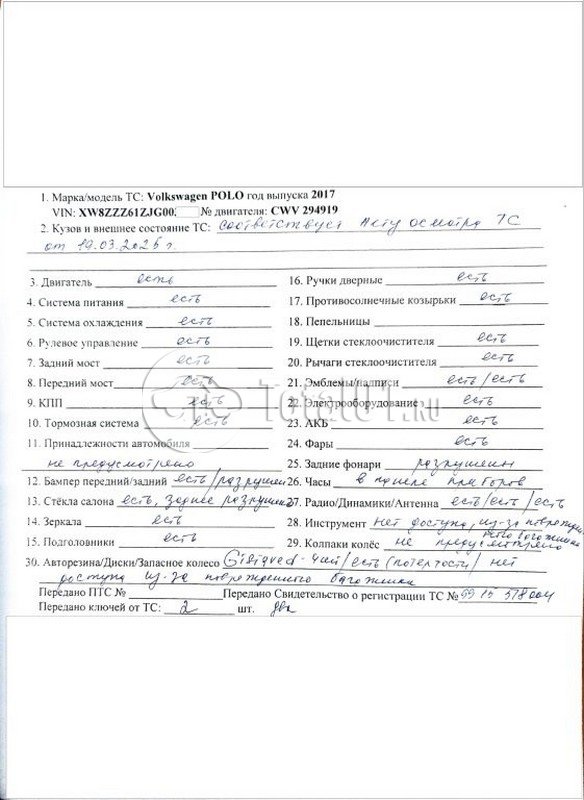 1. Марка/модель ТС: Volkswagen POLO год выпуска 2017
VIN: XW8ZZZ61ZJG00. № двигателя: CWV 294919
2. Кузов и внешнее состояние ТС: Соответствует Акту осмотра ТС
от 19.03.2025 г.
3. Двигатель есть
4. Система питания есть
5. Система охлаждения есть
6. Рулевое управление есть
7. Задний мост есть
8. Передний мост есть
9. КПП есть
10. Тормозная система есть
11. Принадлежности автомобиля
не предусмотрено
12. Бампер передний/задний есть/разрушен
13. Стёкла салона есть, заднее разрушено
14. Зеркала есть
15. Подголовники есть
16. Ручки дверные есть
17. Противосолнечные козырьки есть
18. Пепельницы
19. Щетки стеклоочистителя есть
20. Рычаги стеклоочистителя есть
21. Эмблемы/надписи есть/есть
22. Электрооборудование есть
23. АКБ есть
24. Фары есть
25. Задние фонари разрушены
26. Часы в панели приборов
27. Радио/Динамики/Антенна есть/есть/есть
28. Инструмент нет доступа, из-за поврежден
ного багажника
29. Колпаки колёс не предусмотрено
30. Авторезина/Диски/Запасное колесо Gislaved - 4шт/есть (потертости)/нет
доступа из-за поврежденного багажника
Передано ПТС № Передано Свидетельство о регистрации ТС №
Передано ключей от ТС: 2 шт. два
Total01.ru